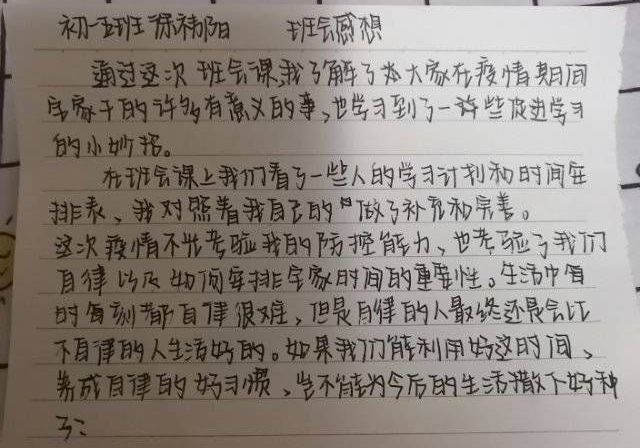 初一五班 徐祎阳 班会感想
通过这次班会课,我了解了大家在疫情期间
居家干的许多有意义的事,也学习到了一许些促进学习
的小妙招。
在班会课上我们看了一些人的学习计划和时间安
排表、我对照着我自己的做了补充和完善。
这次疫情不光考验我的防控能力,也考验了我们
自律以及如何安排居家时间的重要性。生活中每
时每刻都自律很难,但是自律的人最终还是会比
不自律的人生活好的。如果我们能利用好这时间、
养成自律的好习惯、岂不能为今后的生活撒下好种